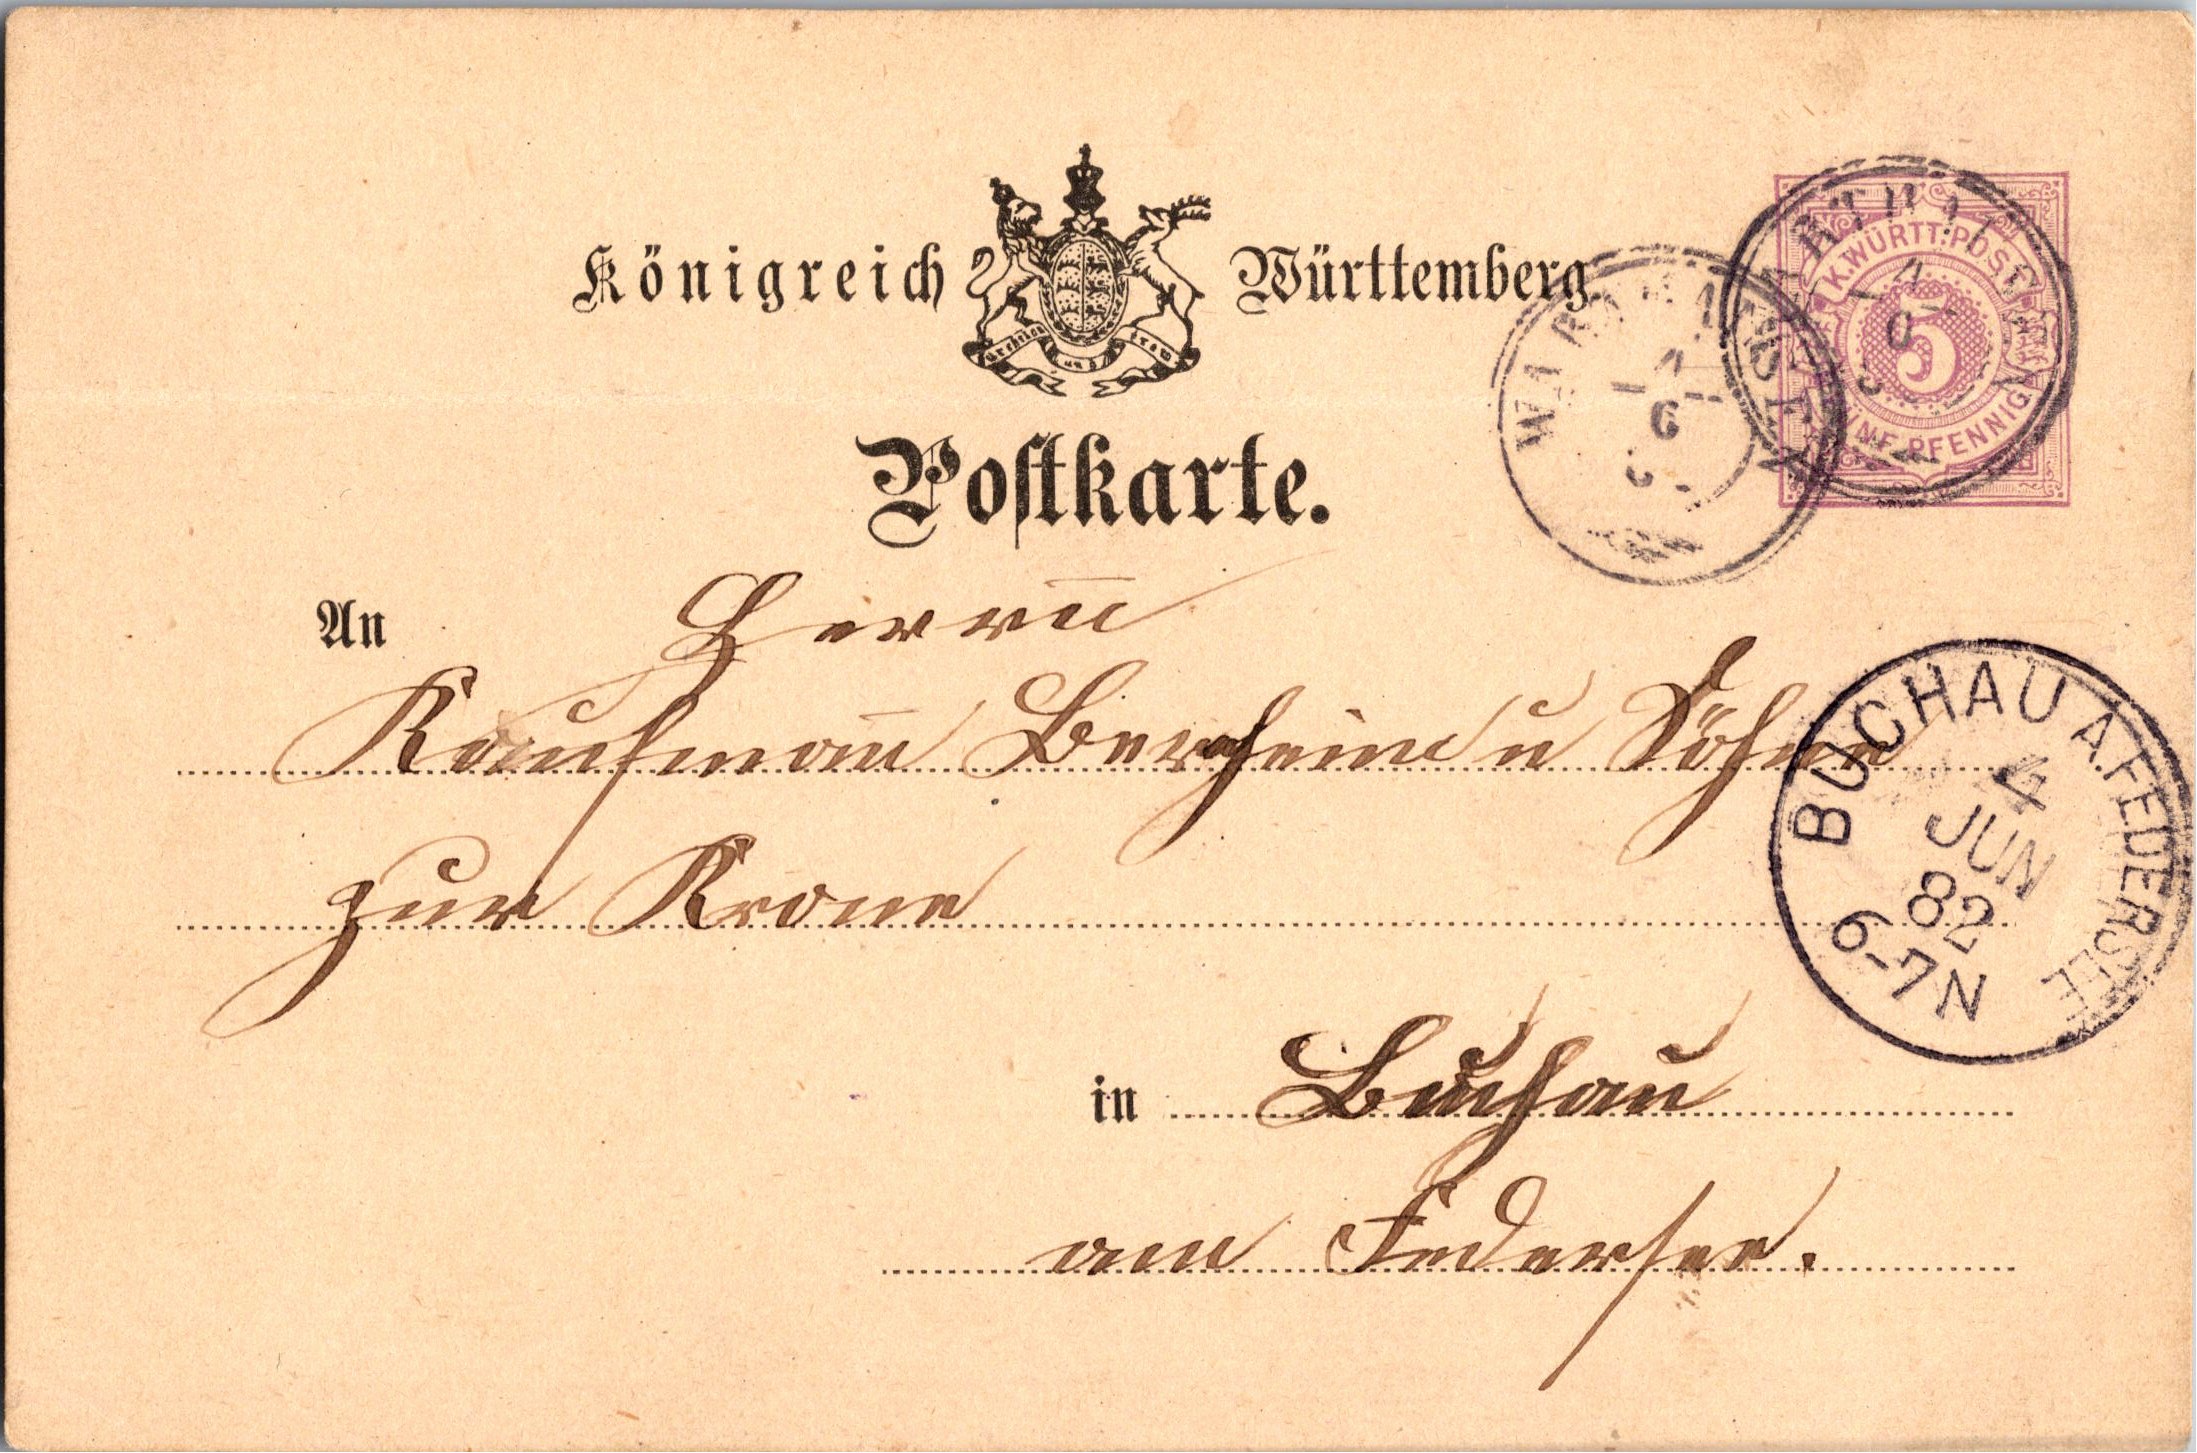 Königreich Württemberg
furchtlos und trew
K. WÜRTT. POST
5
FÜNF PFENNIG
WARTHAUSEN
4
6
WARTHAUSEN
4
BUCHAU A. FEDERSEE
4
JUN
82
6-7N
Postkarte.
An Herrn̄
Kaufmañ Bernheim u Söhne
zur Krone
in Buchau
am Federsee.